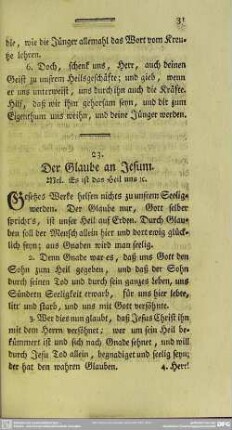 31
die, wie die Jünger allemahl das Wort vom Kreu-
tze lehren.
6. Doch, schenk uns, Herr, auch deinen
Geist zu unserm Heilsgeschäfte; und gieb, wenn
er uns unterweist, uns durch ihn auch die Kräfte.
Hilf, daß wir ihm gehorsam seyn, und dir zum
Eigenthum uns weihn, und deine Jünger werden.
23.
Der Glaube an Jesum.
Mel. Es ist das Heil uns ic.
Gesetzes Werke helfen nichts zu unsrem Seelig-
werden. Der Glaube nur, Gott selber
spricht's, ist unser Heil auf Erden. Durch Glau-
ben soll der Mensch allein hier und dort ewig glück-
lich seyn; aus Gnaden wird man seelig.
2. Denn Gnade war es, daß uns Gott den
Sohn zum Heil gegeben, und daß der Sohn
durch seinen Tod und durch sein ganzes Leben, uns
Sündern Seeligkeit erwarb, für uns hier lebte,
litt und starb, und uns mit Gott versöhnte.
3. Wer dies nun glaubt, daß Jesus Christ ihn
mit dem Herrn versöhnet; wer um sein Heil be-
kümmert ist und sich nach Gnade sehnet, und will
durch Jesu Tod allein, begnadiget und seelig seyn;
der hat den wahren Glauben.
4. Herr!